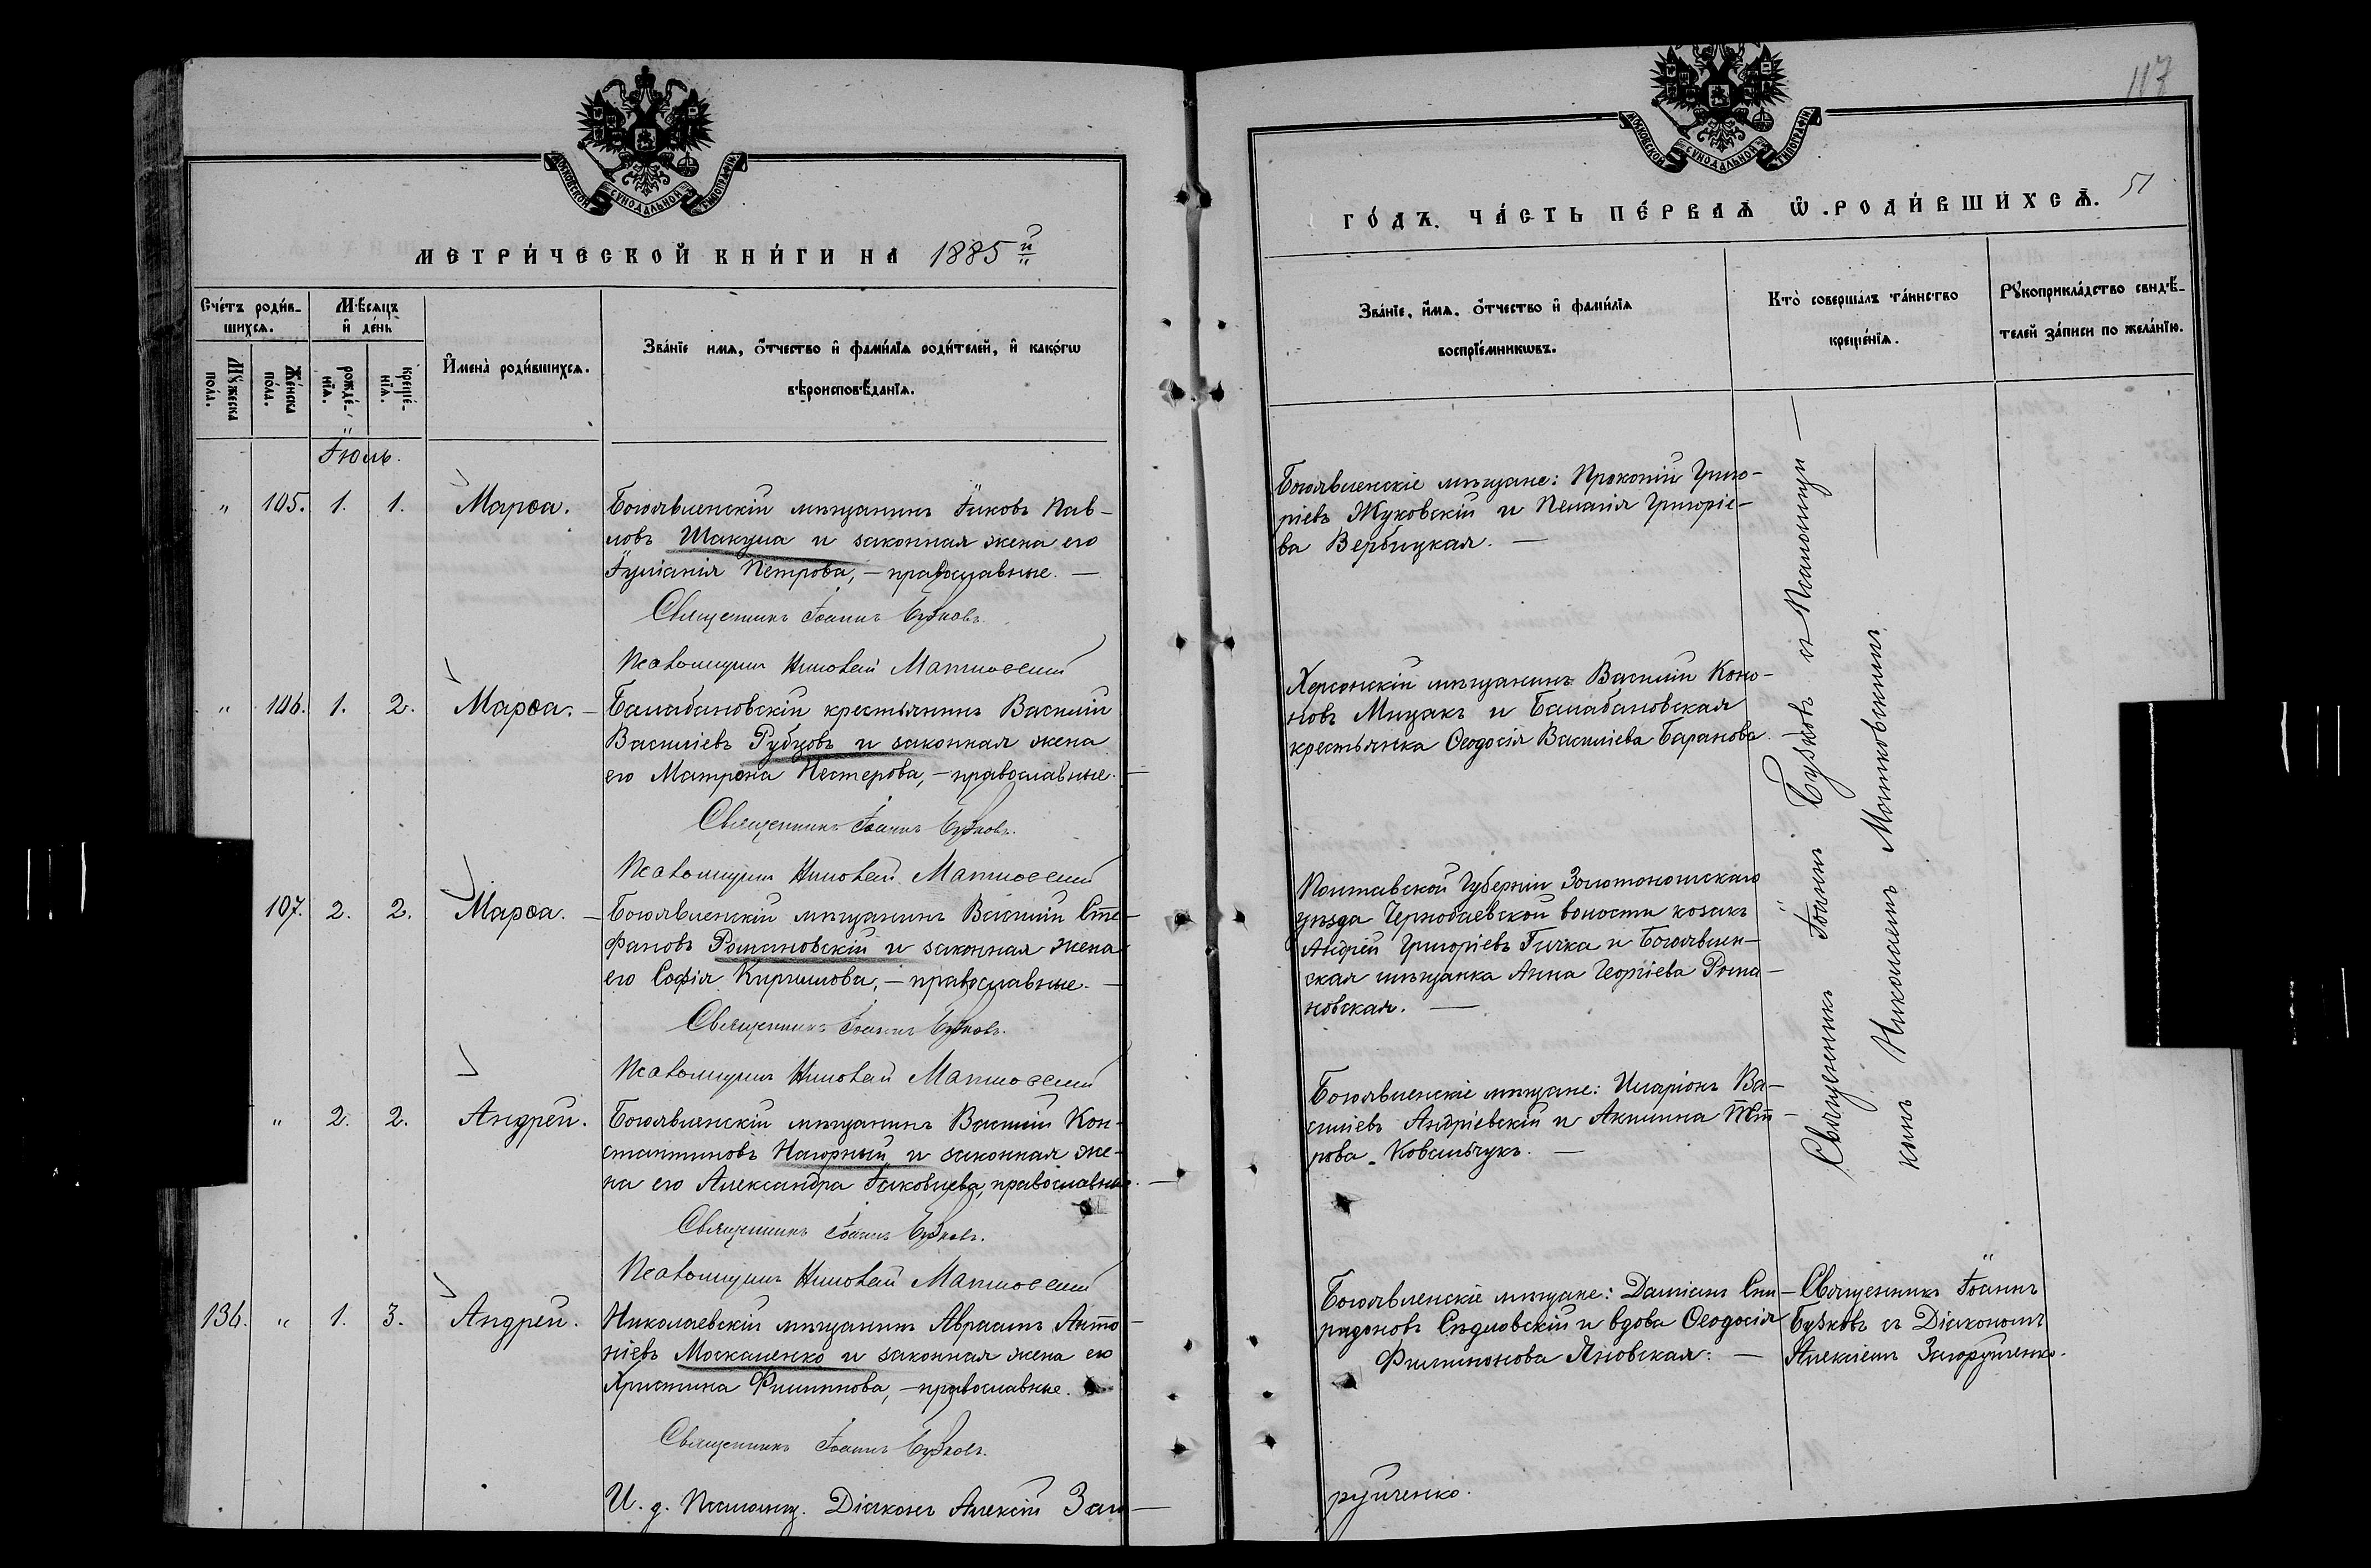 МОСКОВСКОЙ СѴНОДАЛЬНОЙ ТИПОГРАФІИ
МЕТРИ́ЧЕСКОЙ КНИ́ГИ НА 1885й
Сче́тъ роди́в-
шихсѧ.
Мѣ́сѧцъ
и҆ де́нь
Мꙋ́жеска
по́ла.
Же́нска
по́ла.
рожде́-
нїѧ.
креще́-
нїѧ.
И҆мена̀ роди́вшихсѧ.
Зва́нїе имѧ, ѻ҆́тчество и҆ фами́лїѧ роди́телей, и҆ како́гѡ
вѣроисповѣ́данїѧ.
Іюль.
" 105. 1. 1. Марѳа. Богоявленскій мѣщанинъ Іаковъ Пав-
ловъ Шакула и законная жена его
Іуліанія Петрова, – православные. –
Священникъ Іоаннъ Бузковъ.
Псаломщикъ Николай Матковскій
" 106. 1. 2. Марѳа. – Балабановскій крестьянинъ Василій
Василіевъ Рубцовъ и законная жена
его Матрона Нестерова, – православные. –
Священникъ Іоаннъ Бузковъ.
Псаломщикъ Николай Матковскій
107. 2. 2. Марѳа. – Богоявленскій мѣщанинъ Василій Сте-
фановъ Романовскій и законная жена
его Софія Кириллова, – православные. –
Священникъ Іоаннъ Бузковъ.
Псаломщикъ Николай Матковскій
" 2. 2. Андрей. Богоявленскій мѣщанинъ Василій Кон-
стантиновъ Нагорный и законная же-
на его Александра Іаковлева, православные. –
Священникъ Іоаннъ Бузковъ.
Псаломщикъ Николай Матковскій
136. " 1. 3. Андрей. Николаевскій мѣщанинъ Авраамъ Анто-
ніевъ Москаленко и законная жена его
Христина Филиппова, – православные.
Священникъ Іоаннъ Бузковъ.
И. д. Псаломщ. Діаконъ Алексій Заго-
117
МОСКОВСКОЙ СѴНОДАЛЬНОЙ ТИПОГРАФІИ
ГО́ДЪ. ЧА́СТЬ ПЕ́РВАѦ Ѡ҆ РОДИ́ВШИХСѦ. 51
Зва́нїе, и҆́мѧ, ѻ҆́тчество и҆ фами́лїѧ
воспрїе́мникѡвъ.
Кто̀ соверша́лъ та́инство
креще́нїѧ.
Рꙋкоприкла́дство свидѣ́-
телей за́писи по жела́нїю.
Богоявленскіе мѣщане: Прокопій Григо-
ріевъ Жуковскій и Пелагія Григоріе-
ва Вербицкая. –
Херсонскій мѣщанинъ Василій Коно-
новъ Мицакъ и Балабановская
крестьянка Ѳеодосія Василіева Баранова.
Полтавской Губерніи Золотоношскаго
уѣзда Чернобаевской волости козакъ
Андрей Григоріевъ Гичка и Богоявлен-
ская мѣщанка Анна Георгіева Рома-
новская. –
Богоявленскіе мѣщане: Иларіонъ Ва-
силіевъ Андріевскій и Акилина Пет-
рова Ковальчукъ. –
Священникъ Іоаннъ Бузковъ съ Псаломщи-
комъ Николаемъ Матковскимъ.
Богоявленскіе мѣщане: Даміанъ Спи-
ридоновъ Слѣдловскій и вдова Ѳеодосія
Филимонова Яновская. –
Священникъ Іоаннъ
Бузковъ съ Діакономъ
Алексіемъ Загорутченко.
рутченко.